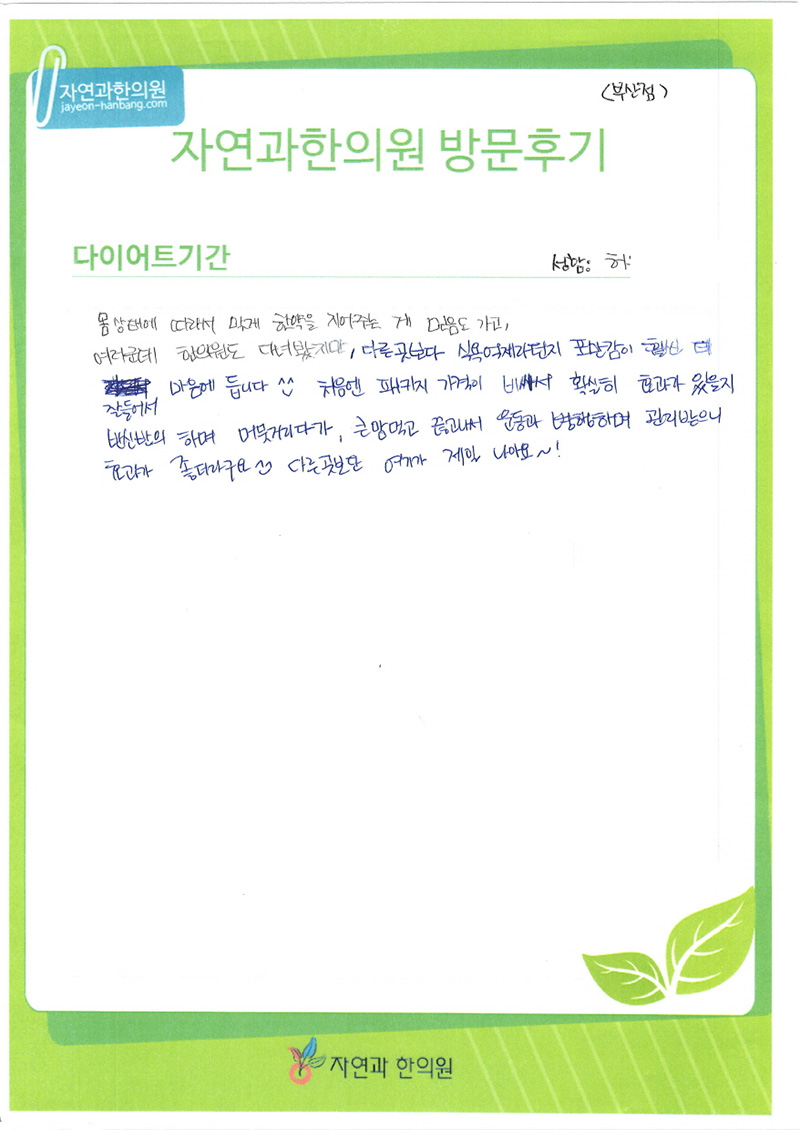 자연과한의원
jayeon-hanbang.com
(부산점)
자연과한의원 방문후기
다이어트기간
성함: 허
몸상태에 따라서 맞게 한약을 지어주는 게 믿음도 가고,
여러군데 한의원도 다녀봤지만, 다른곳보다 식욕억제라던지 포만감이 훨씬
잘들어서 마음에 듭니다 ^^ 처음엔 패키지 가격이 비싸서 확실히 효과가 있을지
반신반의 하며 머뭇거리다가, 큰맘먹고 끊고나서 운동과 병행하며 관리받으니
효과가 좋더라구요 다른곳보단 여기가 제일 나아요~!
자연과 한의원